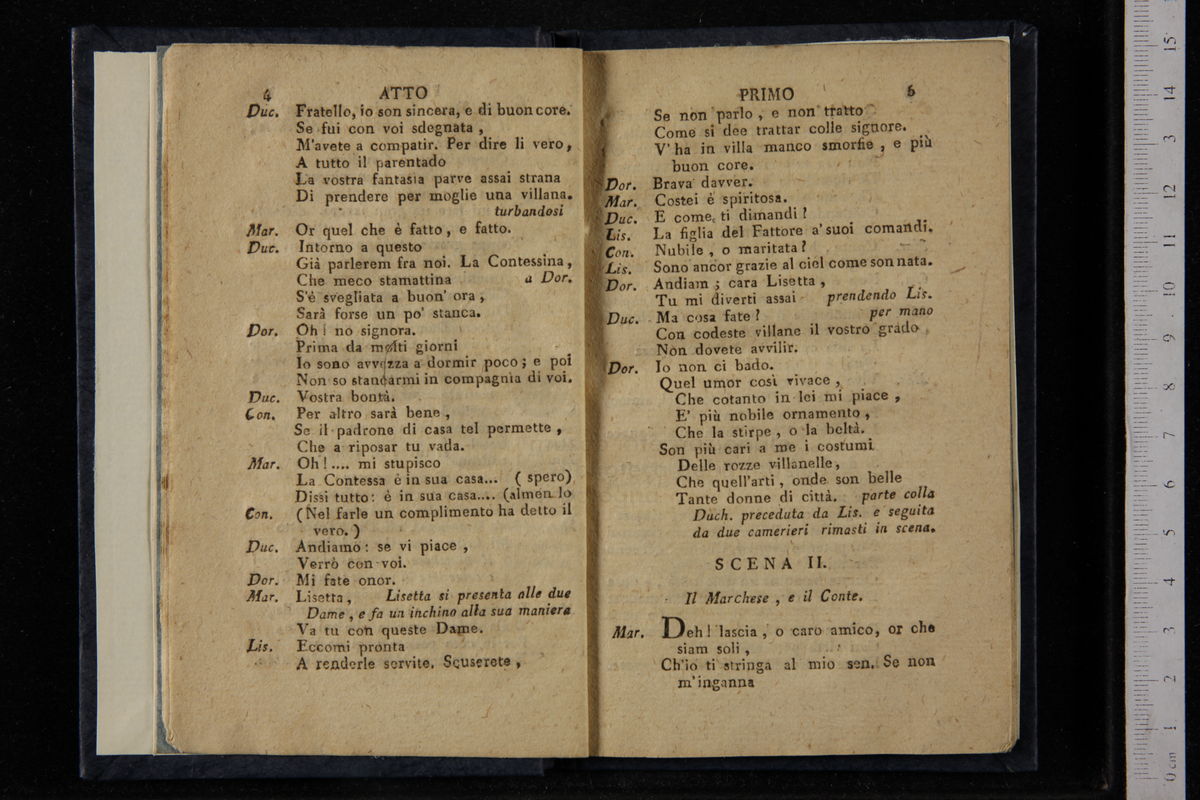 4 ATTO
Duc. Fratello, io son sincera, e di buon core.
Se fui con voi sdegnata ,
M'avete a compatir. Per dire li vero,
A tutto il parentado
La vostra fantasia parve assai strana
Di prendere per moglie una villana.
turbandosi
Mar. Or quel che è fatto, e fatto.
Duc. Intorno a questo
Già parlerem fra noi. La Contessina,
Che meco stamattina a Dor.
S'è svegliata a buon' ora,
Sarà forse un po' stanca.
Dor. Oh! no signora.
Prima da molti giorni
Io sono avvezza a dormir poco; e poi
Non so stancarmi in compagnia di voi.
Duc. Vostra bontà.
Con. Per altro sarà bene,
Se il padrone di casa tel permette,
Che a riposar tu vada.
Mar. Oh!.... mi stupisco
La Contessa è in sua casa... ( spero)
Dissi tutto: è in sua casa.... (almen lo
Con. (Nel farle un complimento ha detto il
vero.)
Duc. Andiamo: se vi piace ,
Verrò con voi.
Dor. Mi fate onor.
Mar. Lisetta, Lisetta si presenta alle due
Dame, e fa un inchino alla sua maniera
Va tu con queste Dame.
Lis. Eccomi pronta
A renderle servite. Scuserete ,
PRIMO 5
Se non parlo , e non tratto
Come si dee trattar colle signore.
V' ha in villa manco smorfie , e più
buon core.
Dor. Brava davver.
Mar. Costei è spiritosa.
Duc. E come ti dimandi?
Lis. La figlia del Fattore a' suoi comandi.
Con. Nubile, o maritata?
Lis. Sono ancor grazie al ciel come son nata.
Dor. Andiam ; cara Lisetta ,
Tu mi diverti assai prendendo Lis.
Duc. Ma cosa fate? per mano
Con codeste villane il vostro grado
Non dovete avvilir.
Dor. Io non ci bado.
Quel umor così vivace ,
Che cotanto in lei mi piace ,
E' più nobile ornamento ,
Che la stirpe , o la beltà.
Son più cari a me i costumi
Delle rozze villanelle,
Che quell'arti , onde son belle
Tante donne di città. parte colla
Duch. preceduta da Lis. e seguita
da due camerieri rimasti in scena.
SCENA II.
Il Marchese , e il Conte.
Mar. Deh! lascia , o caro amico, or che
siam soli ,
Ch'io ti stringa al mio sen. Se non
m'inganna
0 cm 1 2 3 4 5 6 7 8 9 10 11 12 13 14 15